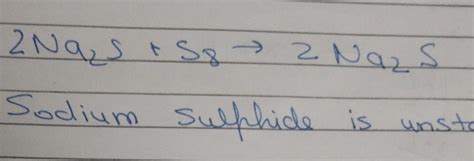 2Na₂S + S₈ → 2Na₂S
Sodium sulphide is